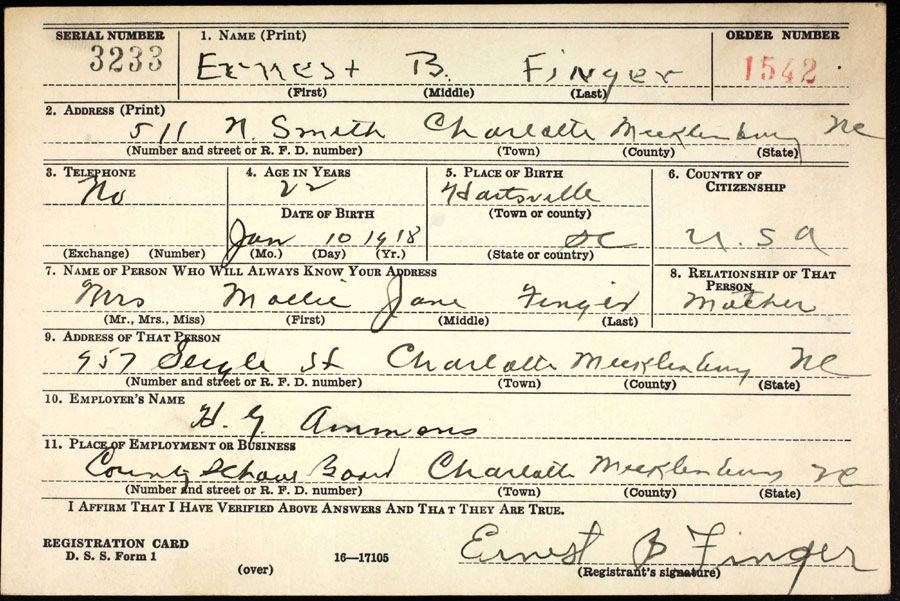 SERIAL NUMBER 1. NAME (Print) ORDER NUMBER
3233 Ernest B. Finger 1542
(First) (Middle) (Last)
2. ADDRESS (Print)
511 N. Smith Charlotte Mecklenburg NC
(Number and street or R. F. D. number) (Town) (County) (State)
3. TELEPHONE 4. AGE IN YEARS 5. PLACE OF BIRTH 6. COUNTRY OF CITIZENSHIP
No 22 Hartsville
DATE OF BIRTH (Town or county)
Jan 10 1918 SC U.S A
(Exchange) (Number) (Mo.) (Day) (Yr.) (State or country)
7. NAME OF PERSON WHO WILL ALWAYS KNOW YOUR ADDRESS 8. RELATIONSHIP OF THAT PERSON
Mrs Mollie Jane Finger Mother
(Mr., Mrs., Miss) (First) (Middle) (Last)
9. ADDRESS OF THAT PERSON
957 Seigle St Charlotte Mecklenburg NC
(Number and street or R. F. D. number) (Town) (County) (State)
10. EMPLOYER'S NAME
Ammons
11. PLACE OF EMPLOYMENT OR BUSINESS
County School Board Charlotte Mecklenburg NC
(Number and street or R. F. D. number) (Town) (County) (State)
I AFFIRM THAT I HAVE VERIFIED ABOVE ANSWERS AND THAT THEY ARE TRUE.
REGISTRATION CARD
D. S. S. Form 1 16—17105 Ernest B Finger
(over) (Registrant's signature)